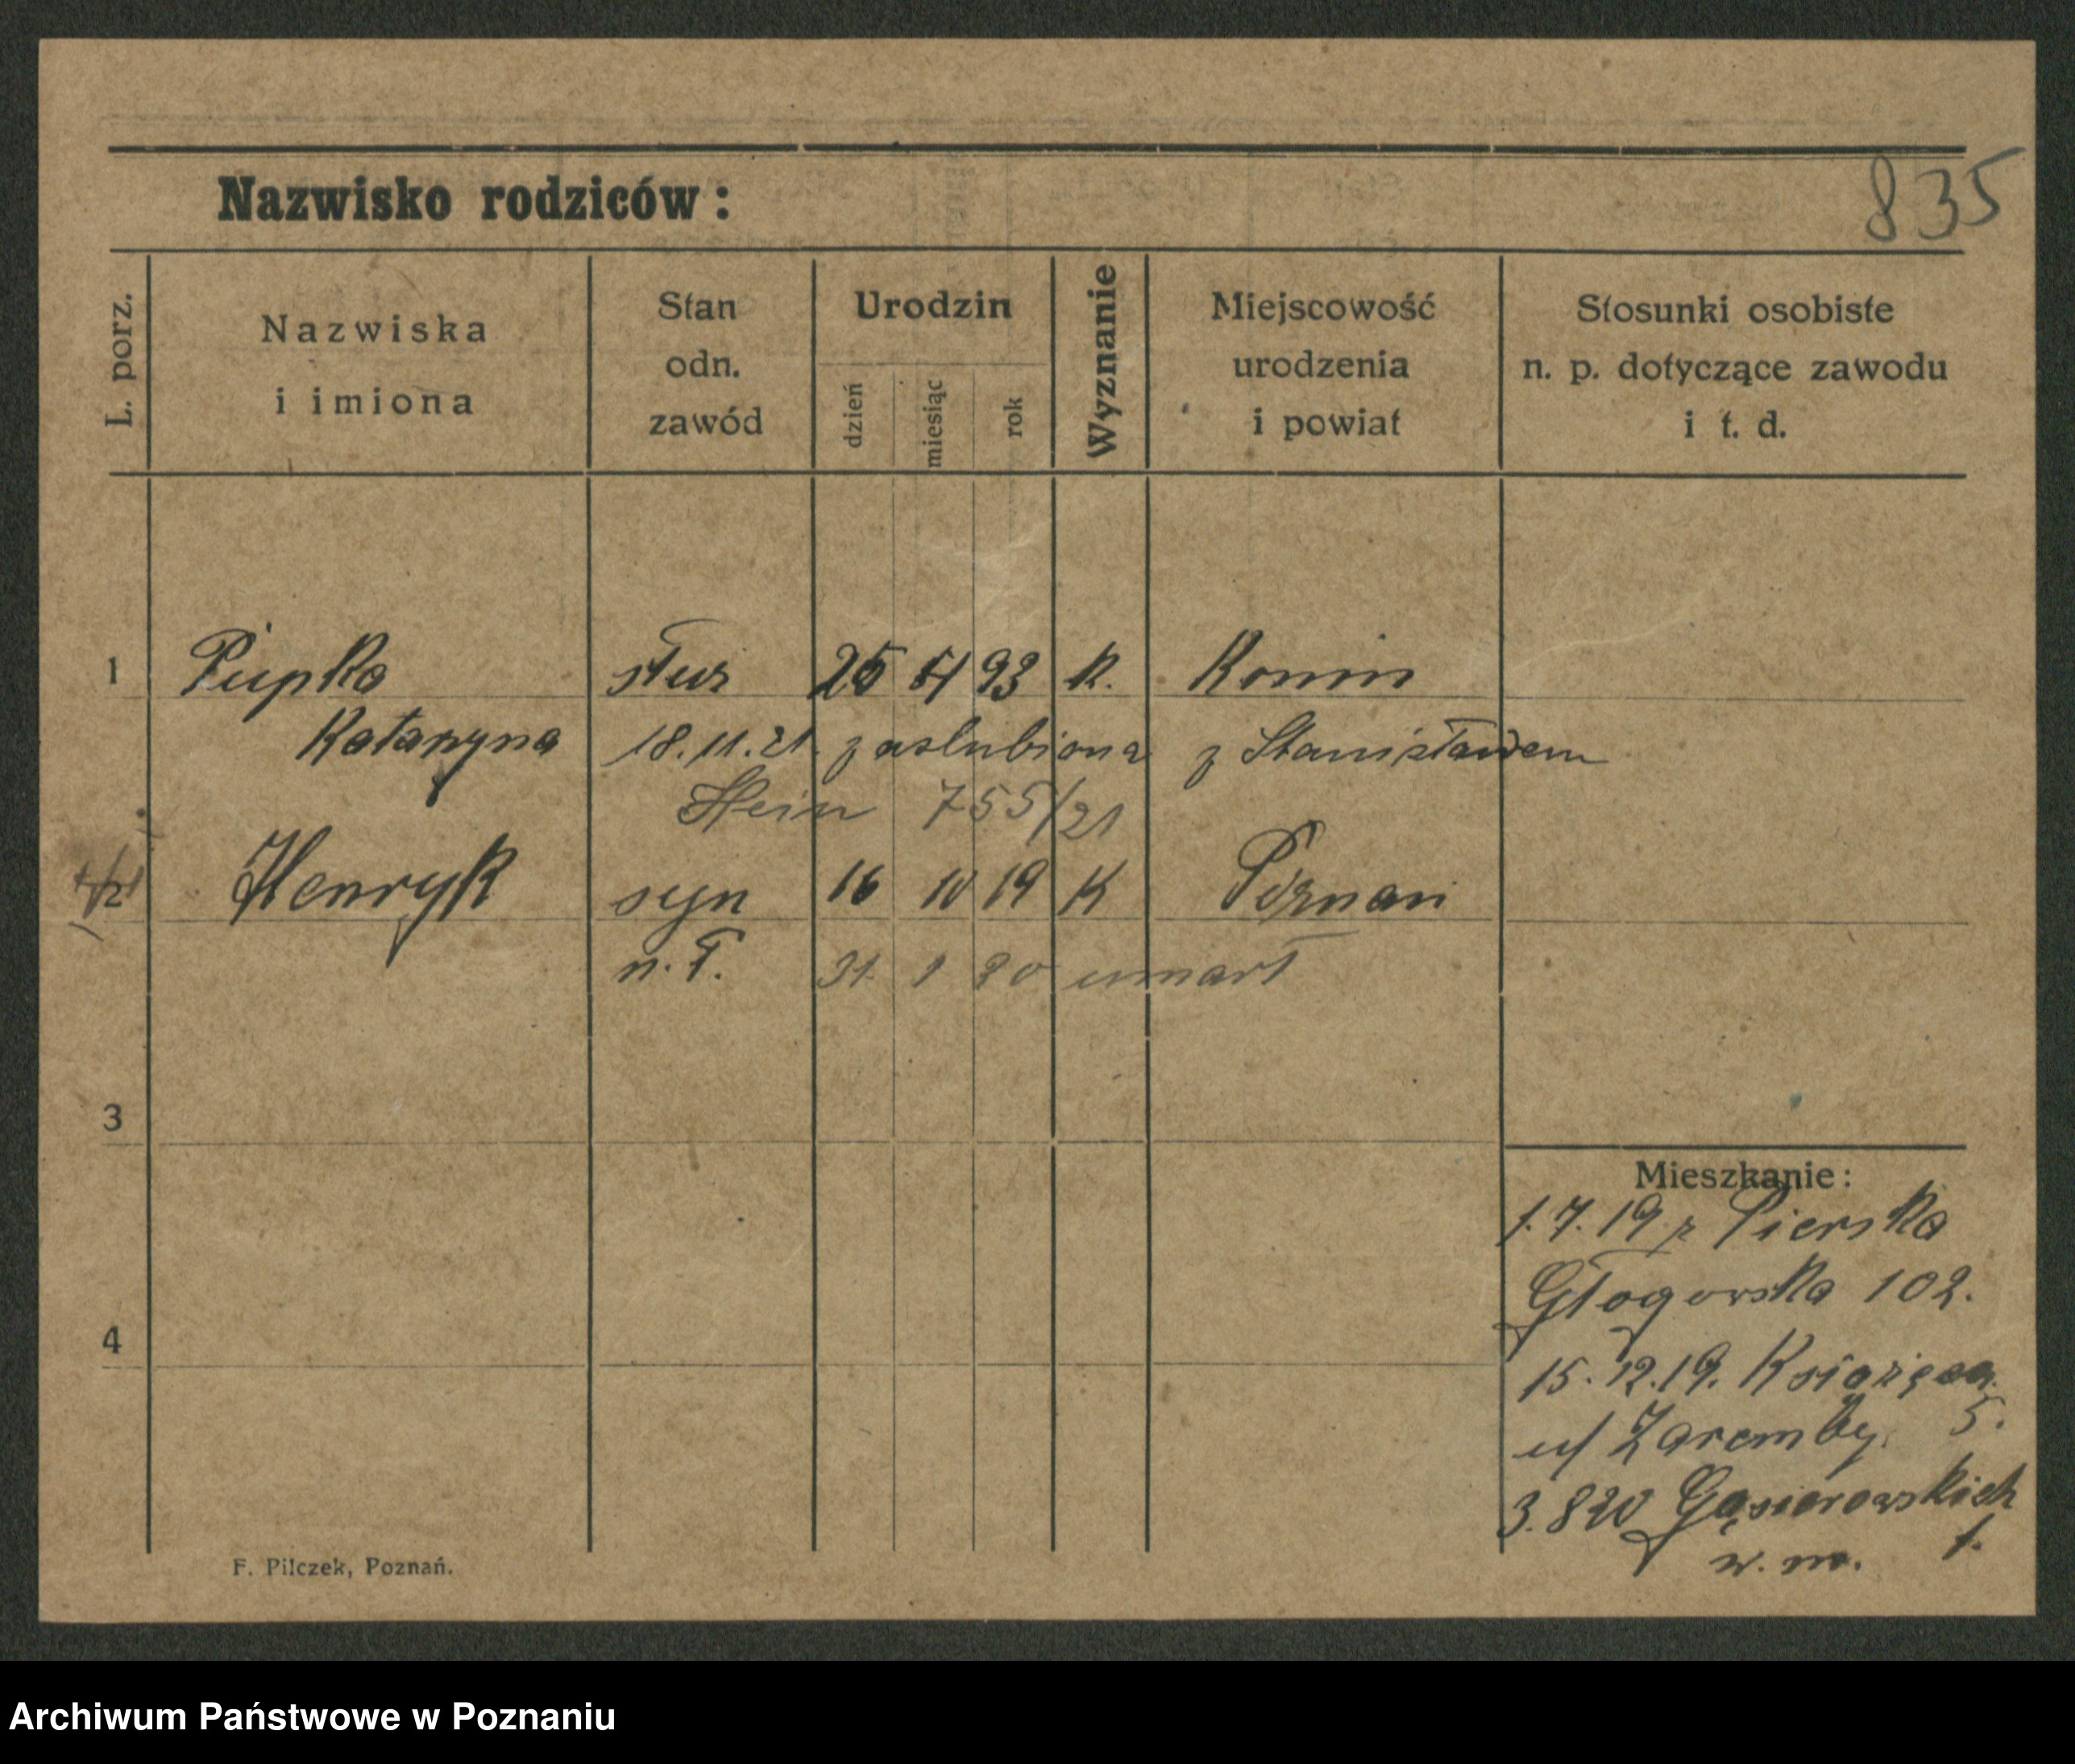 835
Nazwisko rodziców:
L. porz.
Nazwiska
i imiona
Stan
odn.
zawód
Urodzin
dzień
miesiąc
rok
Wyznanie
Miejscowość
urodzenia
i powiat
Stosunki osobiste
n. p. dotyczące zawodu
i t. d.
1 Pupka służ 93 K. Konin
Katarzyna 18.11.21. zaslubiona z Stanisławem
Hein 755/21
2 Henryk syn 16 10 19 K Poznań
n. ł. 31. 1 20 umarł
3
Mieszkanie:
1.7.19 z Pierska
Głogowska 102.
4
15.12.19. Książęca
u/ Zaremby. 5.
3.820 Gąsiorowskich
w. m. 1.
F. Pilczek, Poznań.
Archiwum Państwowe w Poznaniu